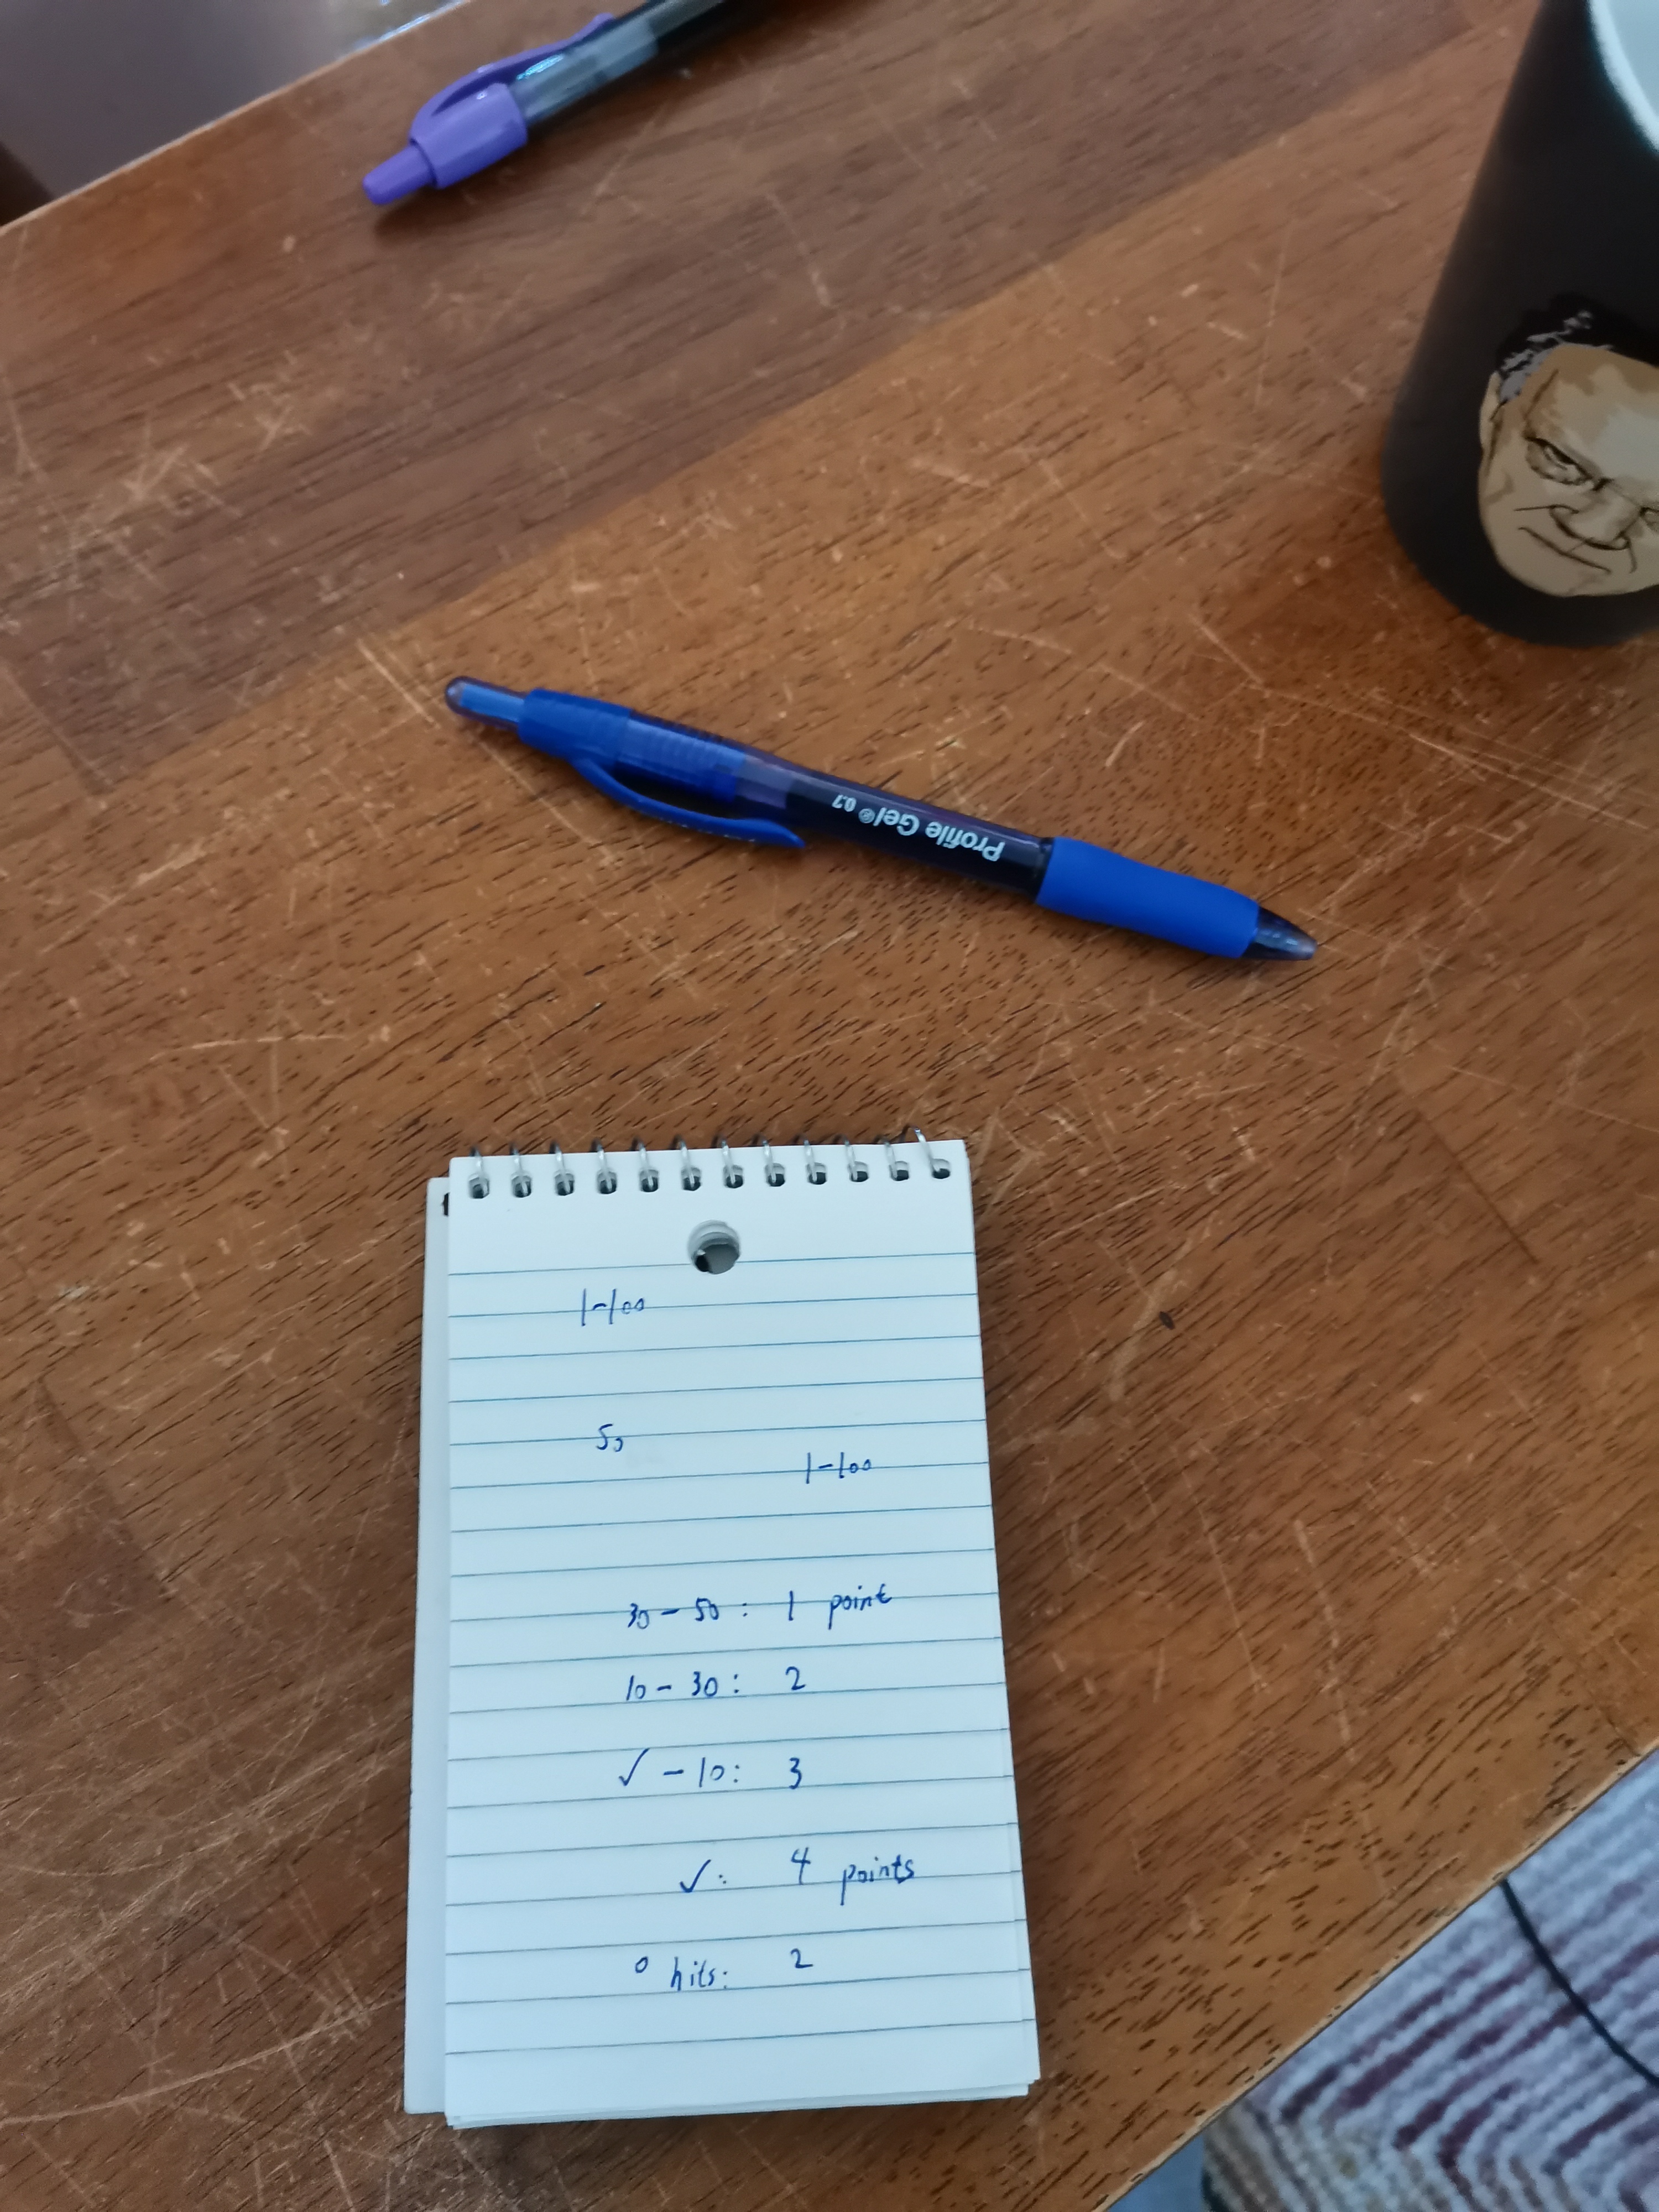 Profile Gel® 0.7
1-100
50
1-100
30 - 50 : 1 point
10 - 30 : 2
✓ - 10 : 3
✓ : 4 points
0 hits : 2